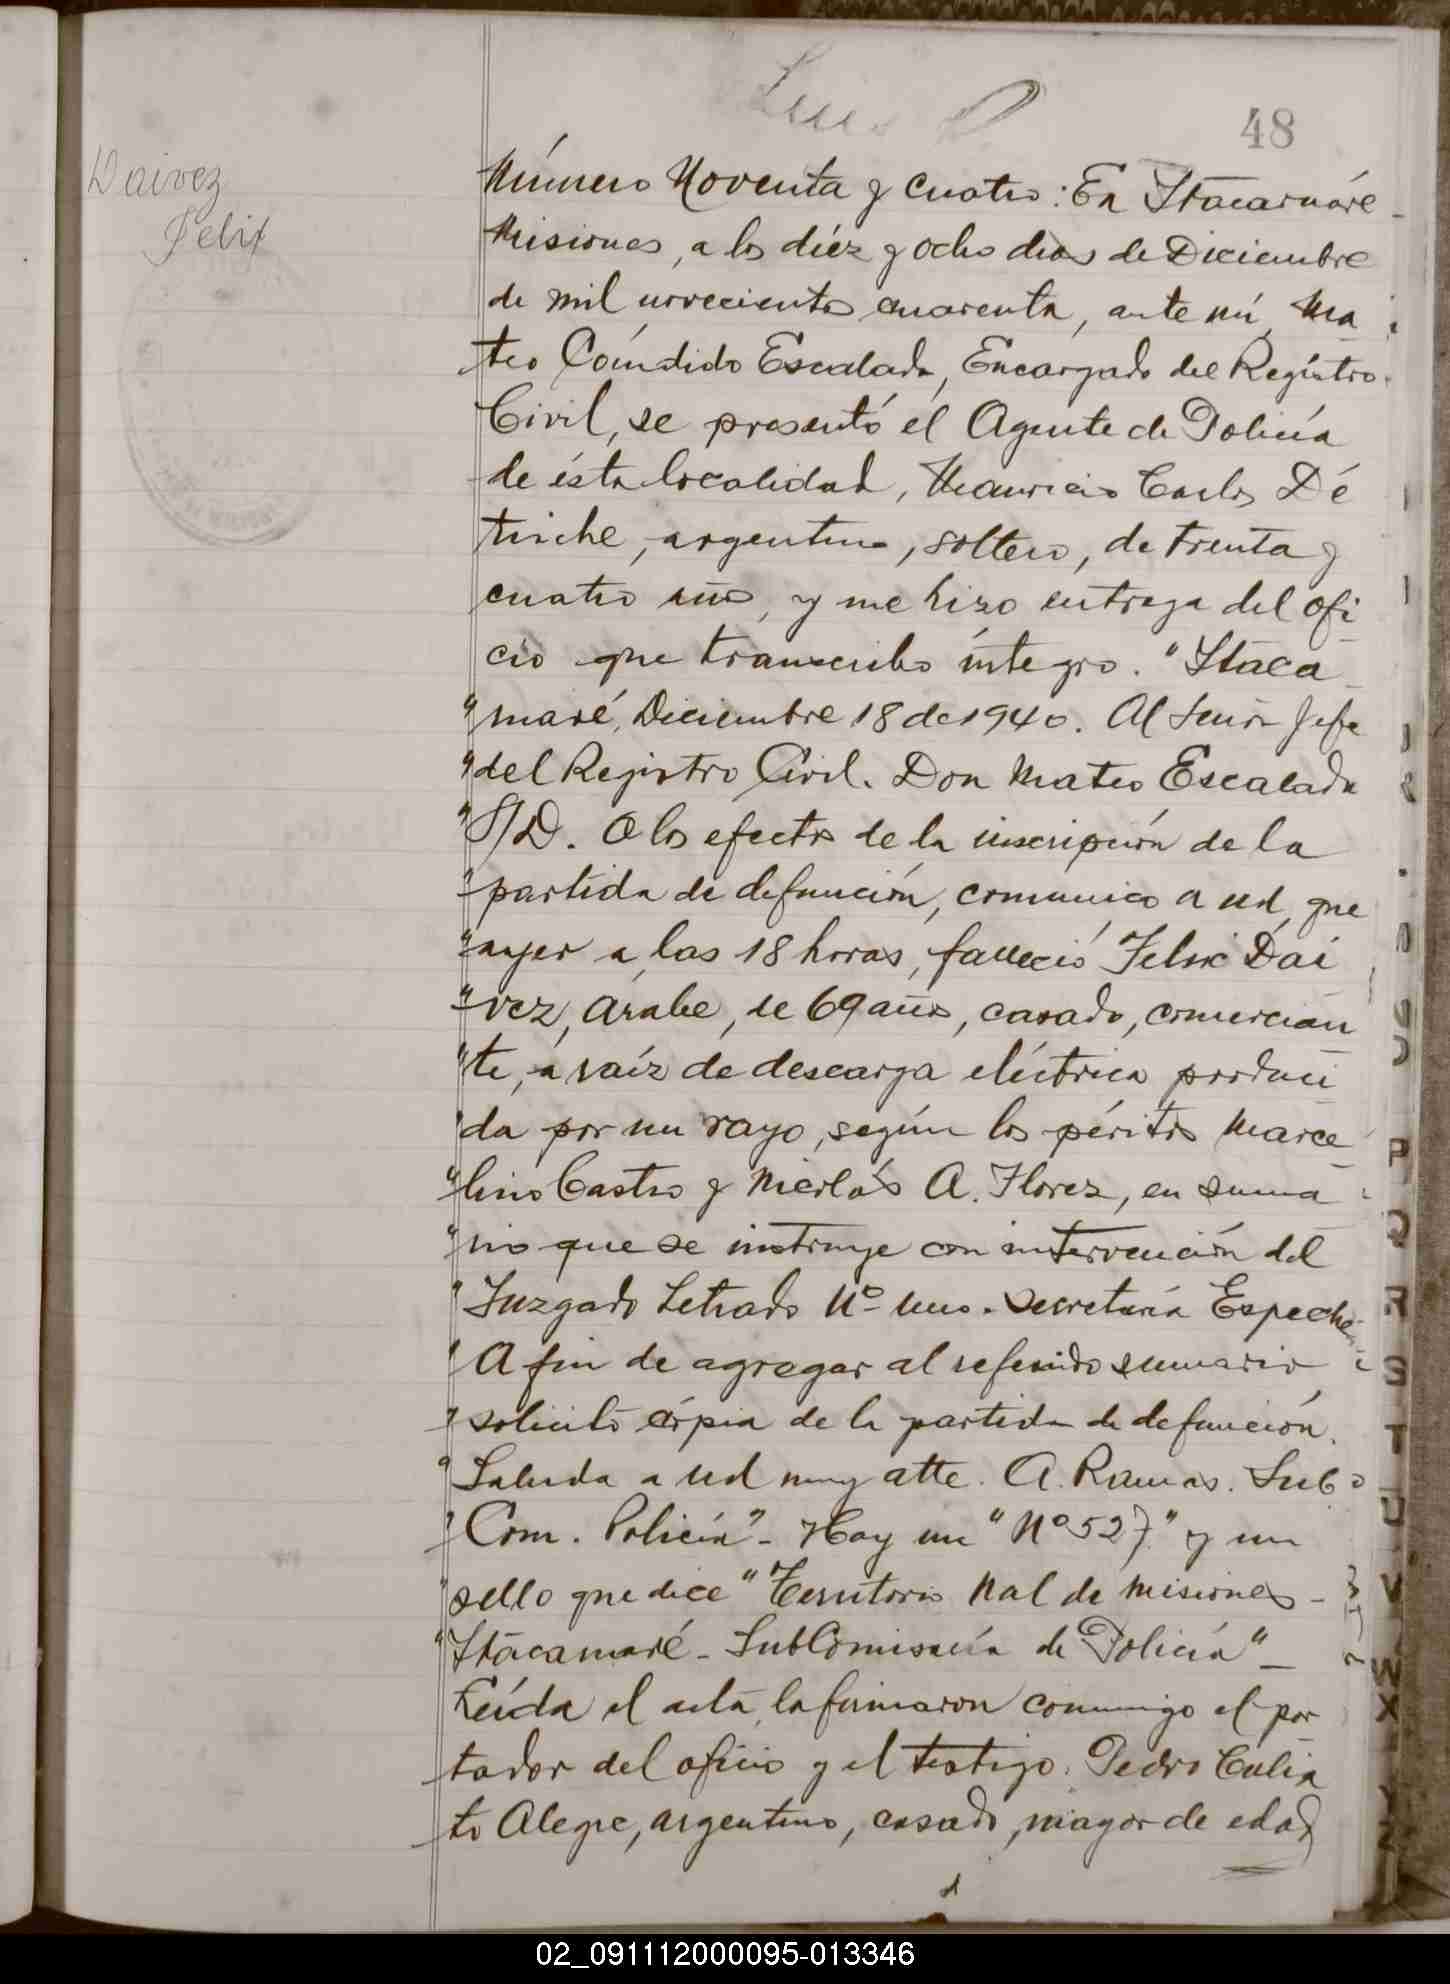 48
Daivez
Felix
Número Noventa y cuatro: En Itacaruáré
Misiones, a los diéz y ocho dias de Diciembre
de mil novecientos cuarenta, ante mí, Ma
teo Cándido Escalada, Encargado del Registro
Civil, se presentó el Agente de Policía
de ésta localidad, Mauricio Carlos Dé
triche, argentino, soltero, de treinta y
cuatro años, y me hizo entrega del ofi
cio que transcribo íntegro. "Itaca
"maré, Diciembre 18 de 1940. Al Señor Jefe
"del Registro Civil. Don Mateo Escalada
"S/D. A los efectos de la inscripción de la
"partida de defunción, comunico a Ud, que
"ayer a las 18 horas, falleció Felix Dai
"vez, árabe, de 69 años, casado, comercian
"te, a raíz de descarga eléctrica produci
"da por un rayo, según los péritos Marce
"lino Castro y Nicolás A. Florez, en suma
"rio que se instruye con intervención del
"Juzgado Letrado Nº uno. Secretaría Espeche.
"A fin de agregar al referido sumario
"solicito cópia de la partida de defunción.
"Saluda a Ud muy atte. A. Ramos. Sub
"Com. Policía"- Hay un "Nº 527." y un
sello que dice "Territorio Nal de Misiones -
"Itacamaré - SubComisaría de Policía" -
Leída el acta, la firmaron conmigo el por
tador del oficio y el testigo. Pedro
to Alegre, argentino, casado, mayor de edad
P
Q
R
S
T
U
V
W
X
Z
02_091112000095-013346